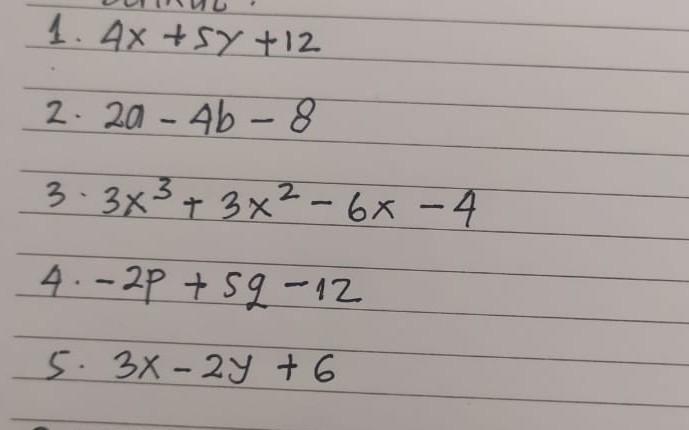 1. 4x + 5y + 12
2. 2a - 4b - 8
3. 3x³ + 3x² - 6x - 4
4. -2p + 5q - 12
5. 3x - 2y + 6